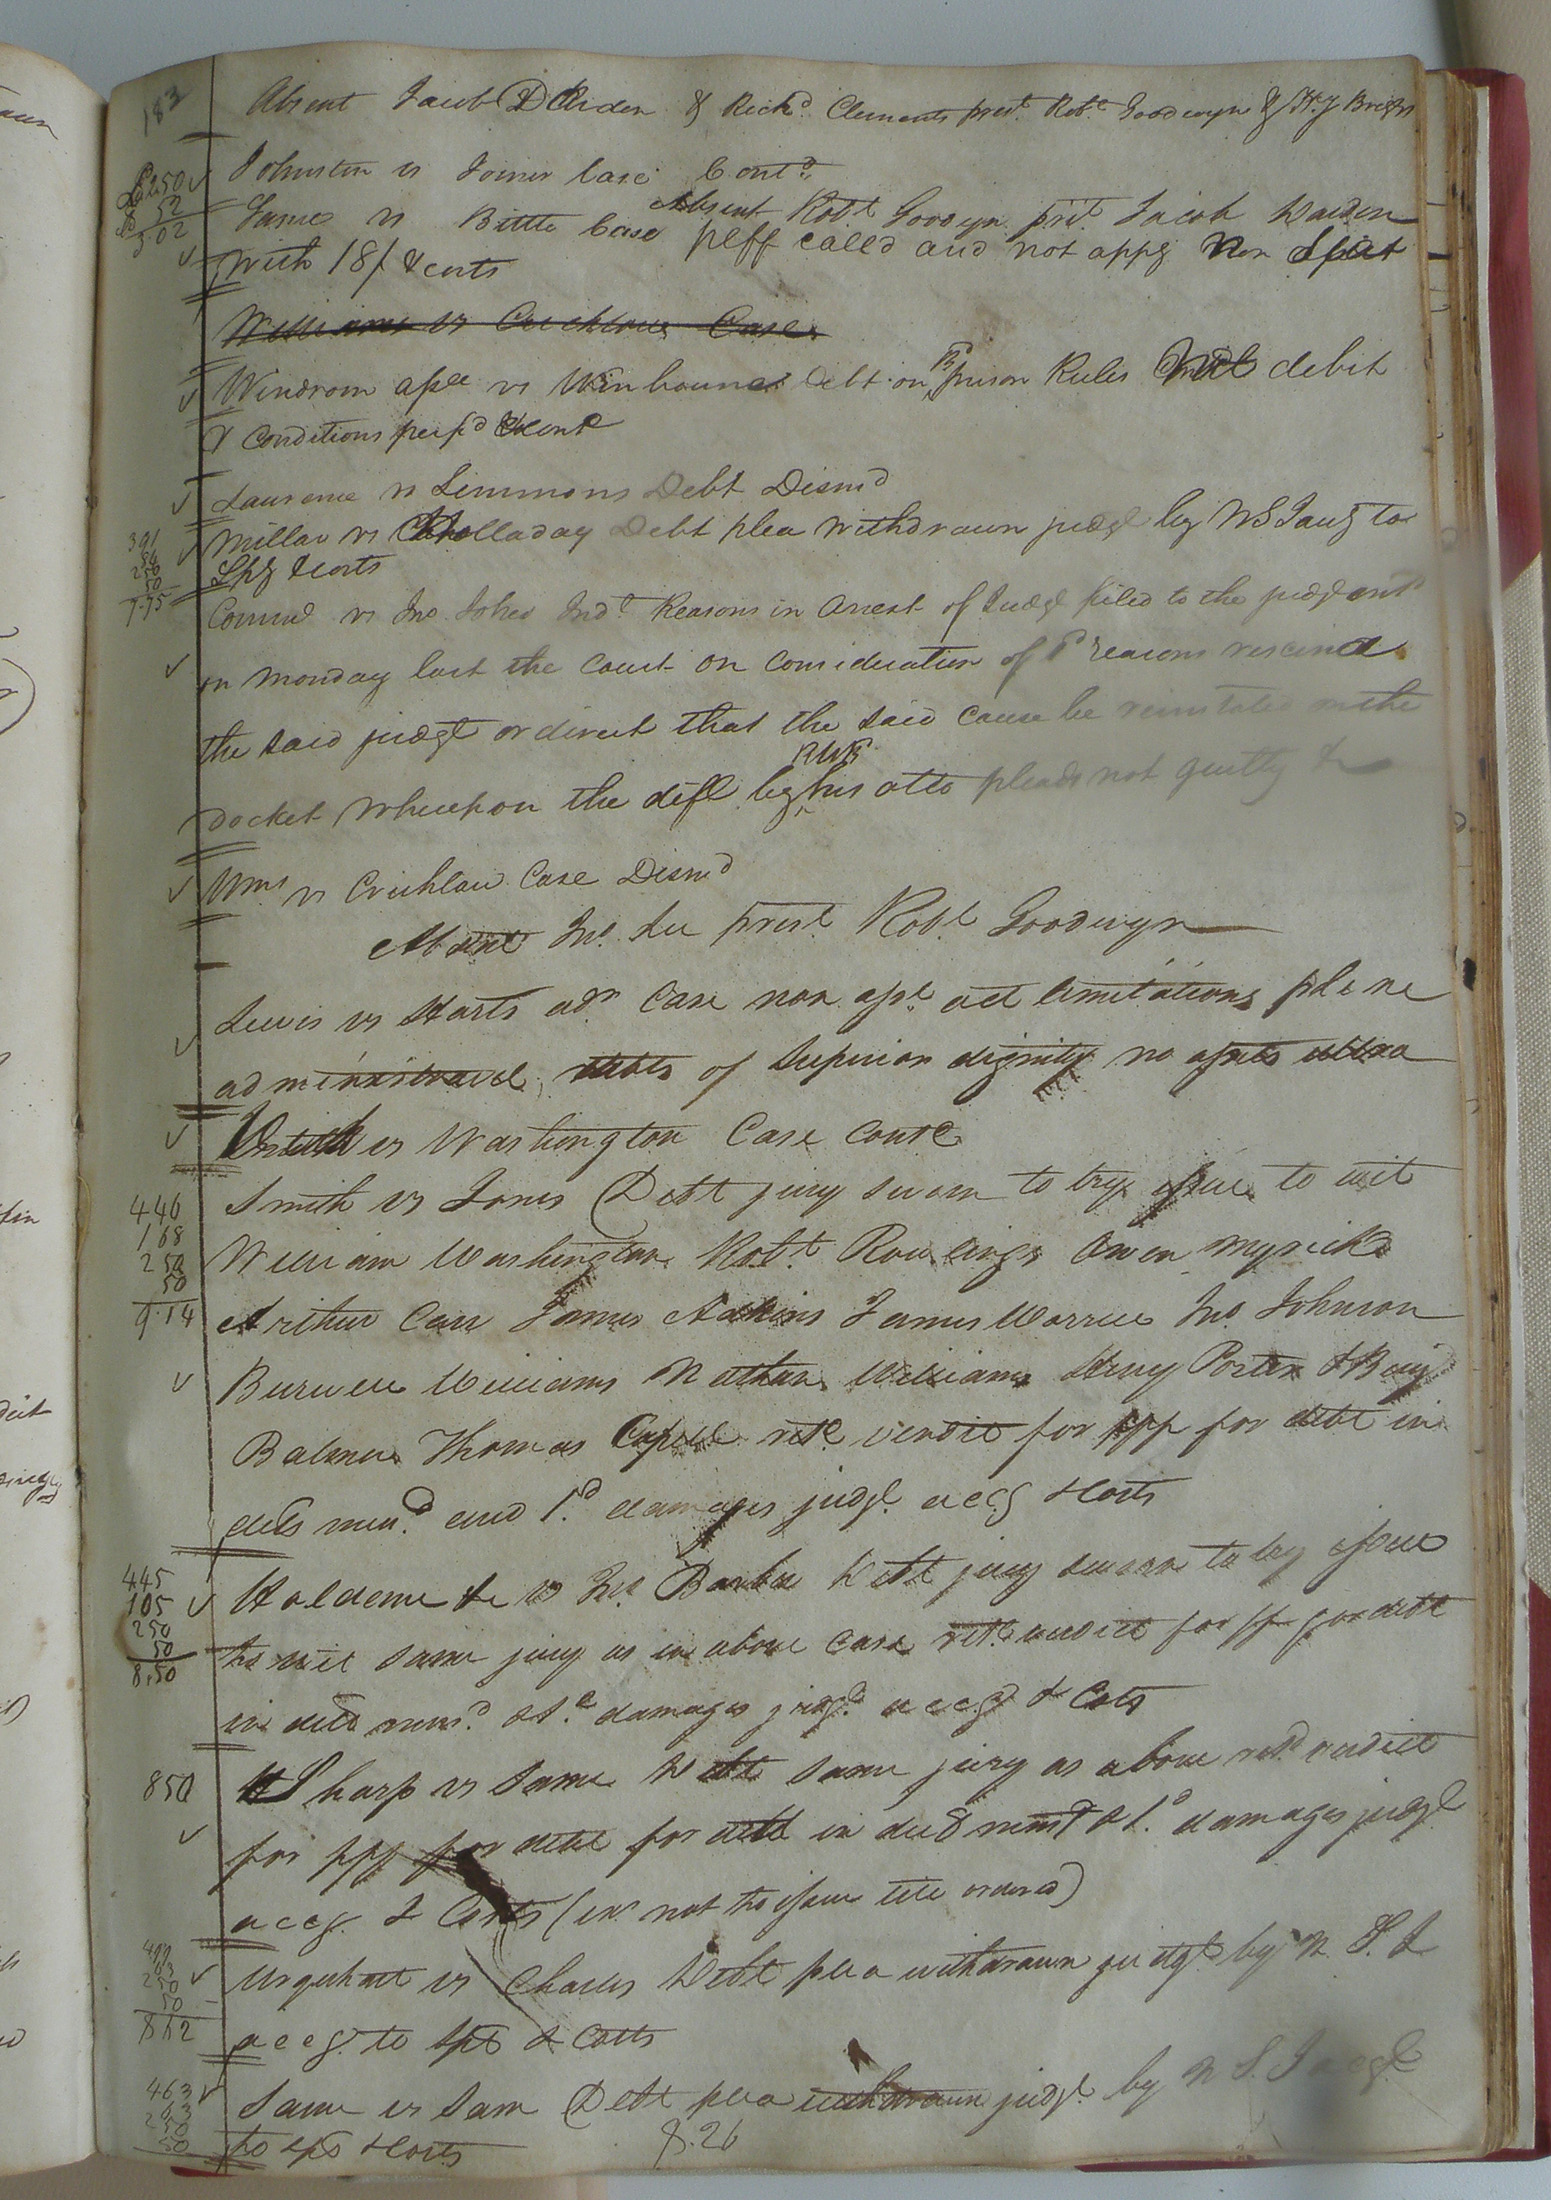 183
Absent Jacob D & Rich.d Clements pres.t Rob.t Goodwyn & H. J Briggs
2.50 Johnston vs Joiner Case Cont.d
52
3.02
Same vs Bittle Case Absent Robt Goodwyn prst. Jacob Darden
plff called and not appg Non Spct
with 18/ & costs
Williams vs Crichlow Case
Windrom assee vs Winbourne Debt on prison Rules debit
& Conditions perf'd & Cont
Laurence vs Simmons Debt Dism'd
Millar vs Holladay Debt plea withdrawn judgt by N S I accg to
391
56
250
50
7.75
Spg & costs
Comwl vs Jno. Ind.t Reasons in Arrest of Judgt filed to the judgment
on Monday last the Court on Consideration of reasons rescind
the said judgt or direct that the said Cause be reinstated on the
docket Whereupon the deft by his atto pleads not guilty &
Wms vs Crichlow Case Dism'd
Absent Jno. Lee prest. Rob.t Goodwyn
Lewis vs Harts adr Case non ass.t act limitations plene
administravit, debts of Superior dignity no assets ultra
vs Washington Case cont
446
168
250
50
9.14
Smith vs Jones Debt jury sworn to try issue to wit
William Washington Rob.t Rawlings Owen Myrick
Arthur Carr James Adkins James Warren Jno. Johnson
Burwell Williams Nathan Williams Henry Porter & Benj
Balmer Thomas ret verdit for ppf for debt in
decls men.d and 1.d damages judgt. accg & Costs
445
105
250
50
8.50
Haldane &c vs Jno. Barbee Debt jury sworn to try issue
to wit same jury as in above case ret verdict for pf for debt
in decls men.d & 1.d damages judgt. accg & Costs
850
Sharp vs Same Debt same jury as above ret.d verdict
for ppf for debt for debt in decls mend & 1.d damages judgt
accg. & Costs (ex.n not to issue till order'd)
499
63
250
50
8.62
Urquhart vs Charles Debt plea withdrawn judgt. by N. S. I
accg. to spt & Costs
463
63
250
50
Same vs Same Debt plea withdrawn judgt. by N S. I accg
to spt & Costs
8.26